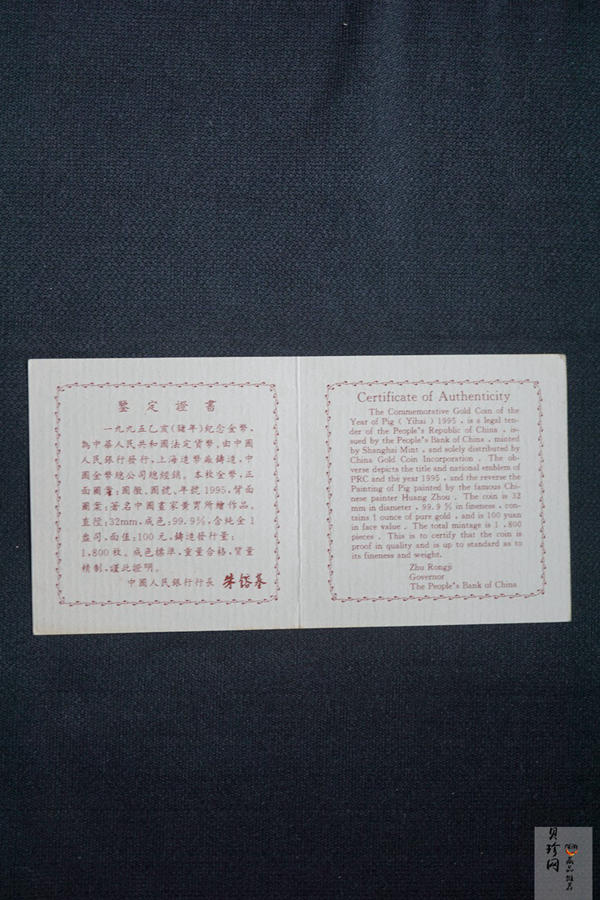 鑒定證書
一九九五乙亥(豬年)紀念金幣,
為中華人民共和國法定貨幣,由中國
人民銀行發行,上海造幣廠鑄造,中
國金幣總公司總經銷。本枚金幣,正
面圖案:國徽、國號、年號1995,背面
圖案:著名中國畫家黃胄所繪作品。
直徑:32mm,成色:99.9%,含純金1
盎司,面值:100元,鑄造發行量:
1,800枚。成色標準,重量合格,質量
精制,謹此證明。
中國人民銀行行長 朱鎔基
Certificate of Authenticity
The Commemorative Gold Coin of the
Year of Pig ( Yihai ) 1995 , is a legal ten-
der of the People's Republic of China , is-
sued by the People's Bank of China , minted
by Shanghai Mint , and solely distributed by
China Gold Coin Incorporation . The ob-
verse depicts the title and national emblem of
PRC and the year 1995 , and the reverse the
Painting of Pig painted by the famous Chi-
nese painter Huang Zhou . The coin is 32
mm in diameter , 99.9 % in fineness , con-
tains 1 ounce of pure gold , and is 100 yuan
in face value . The total mintage is 1 , 800
pieces . This is to certify that the coin is
proof in quality and is up to standard as to
its fineness and weight.
Zhu Rongji
Governor
The People's Bank of China
貝珍网